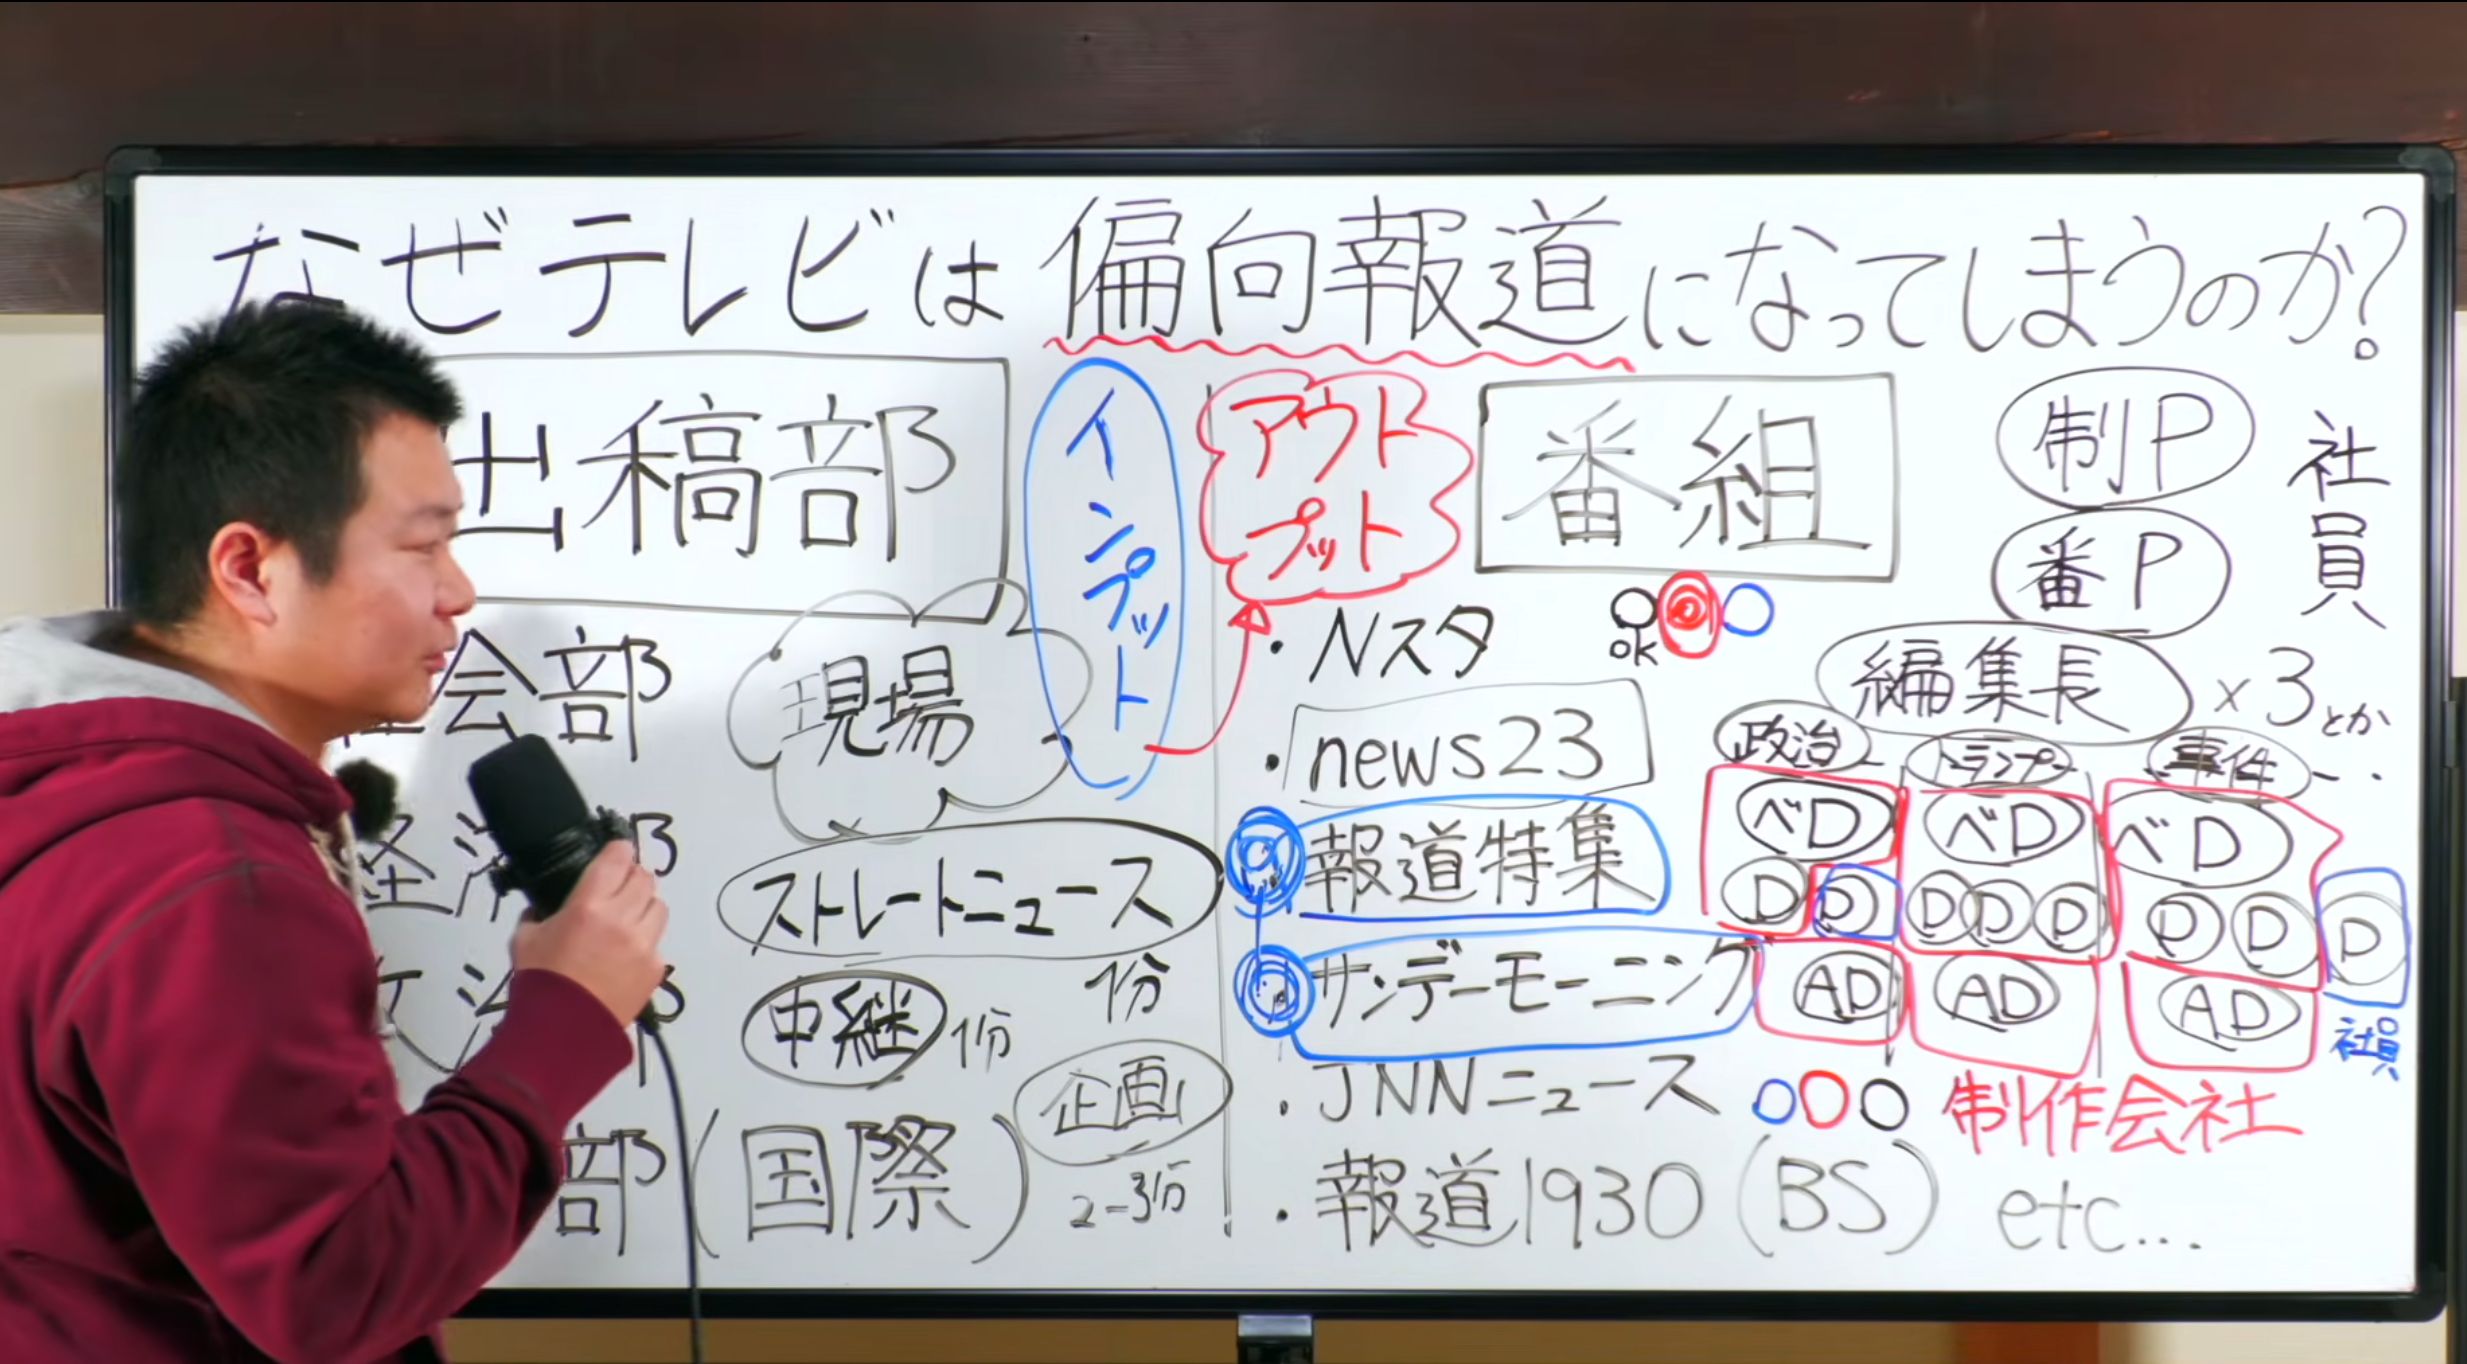 なぜテレビは偏向報道になってしまうのか?
出稿部
会部
現場
ストレートニュース
1分
中継 1分
企画
2-3分
部(国際)
インプット
アウトプット
番組
・Nスタ
・news23
報道特集
サンデーモーニング
・JNNニュース
・報道1930(BS) etc...
ok
制P
番P
社員
編集長 ×3とか
政治 トランプ 事件 ...
ベD ベD ベD
D D D D D D D D
AD AD AD
社員
制作会社